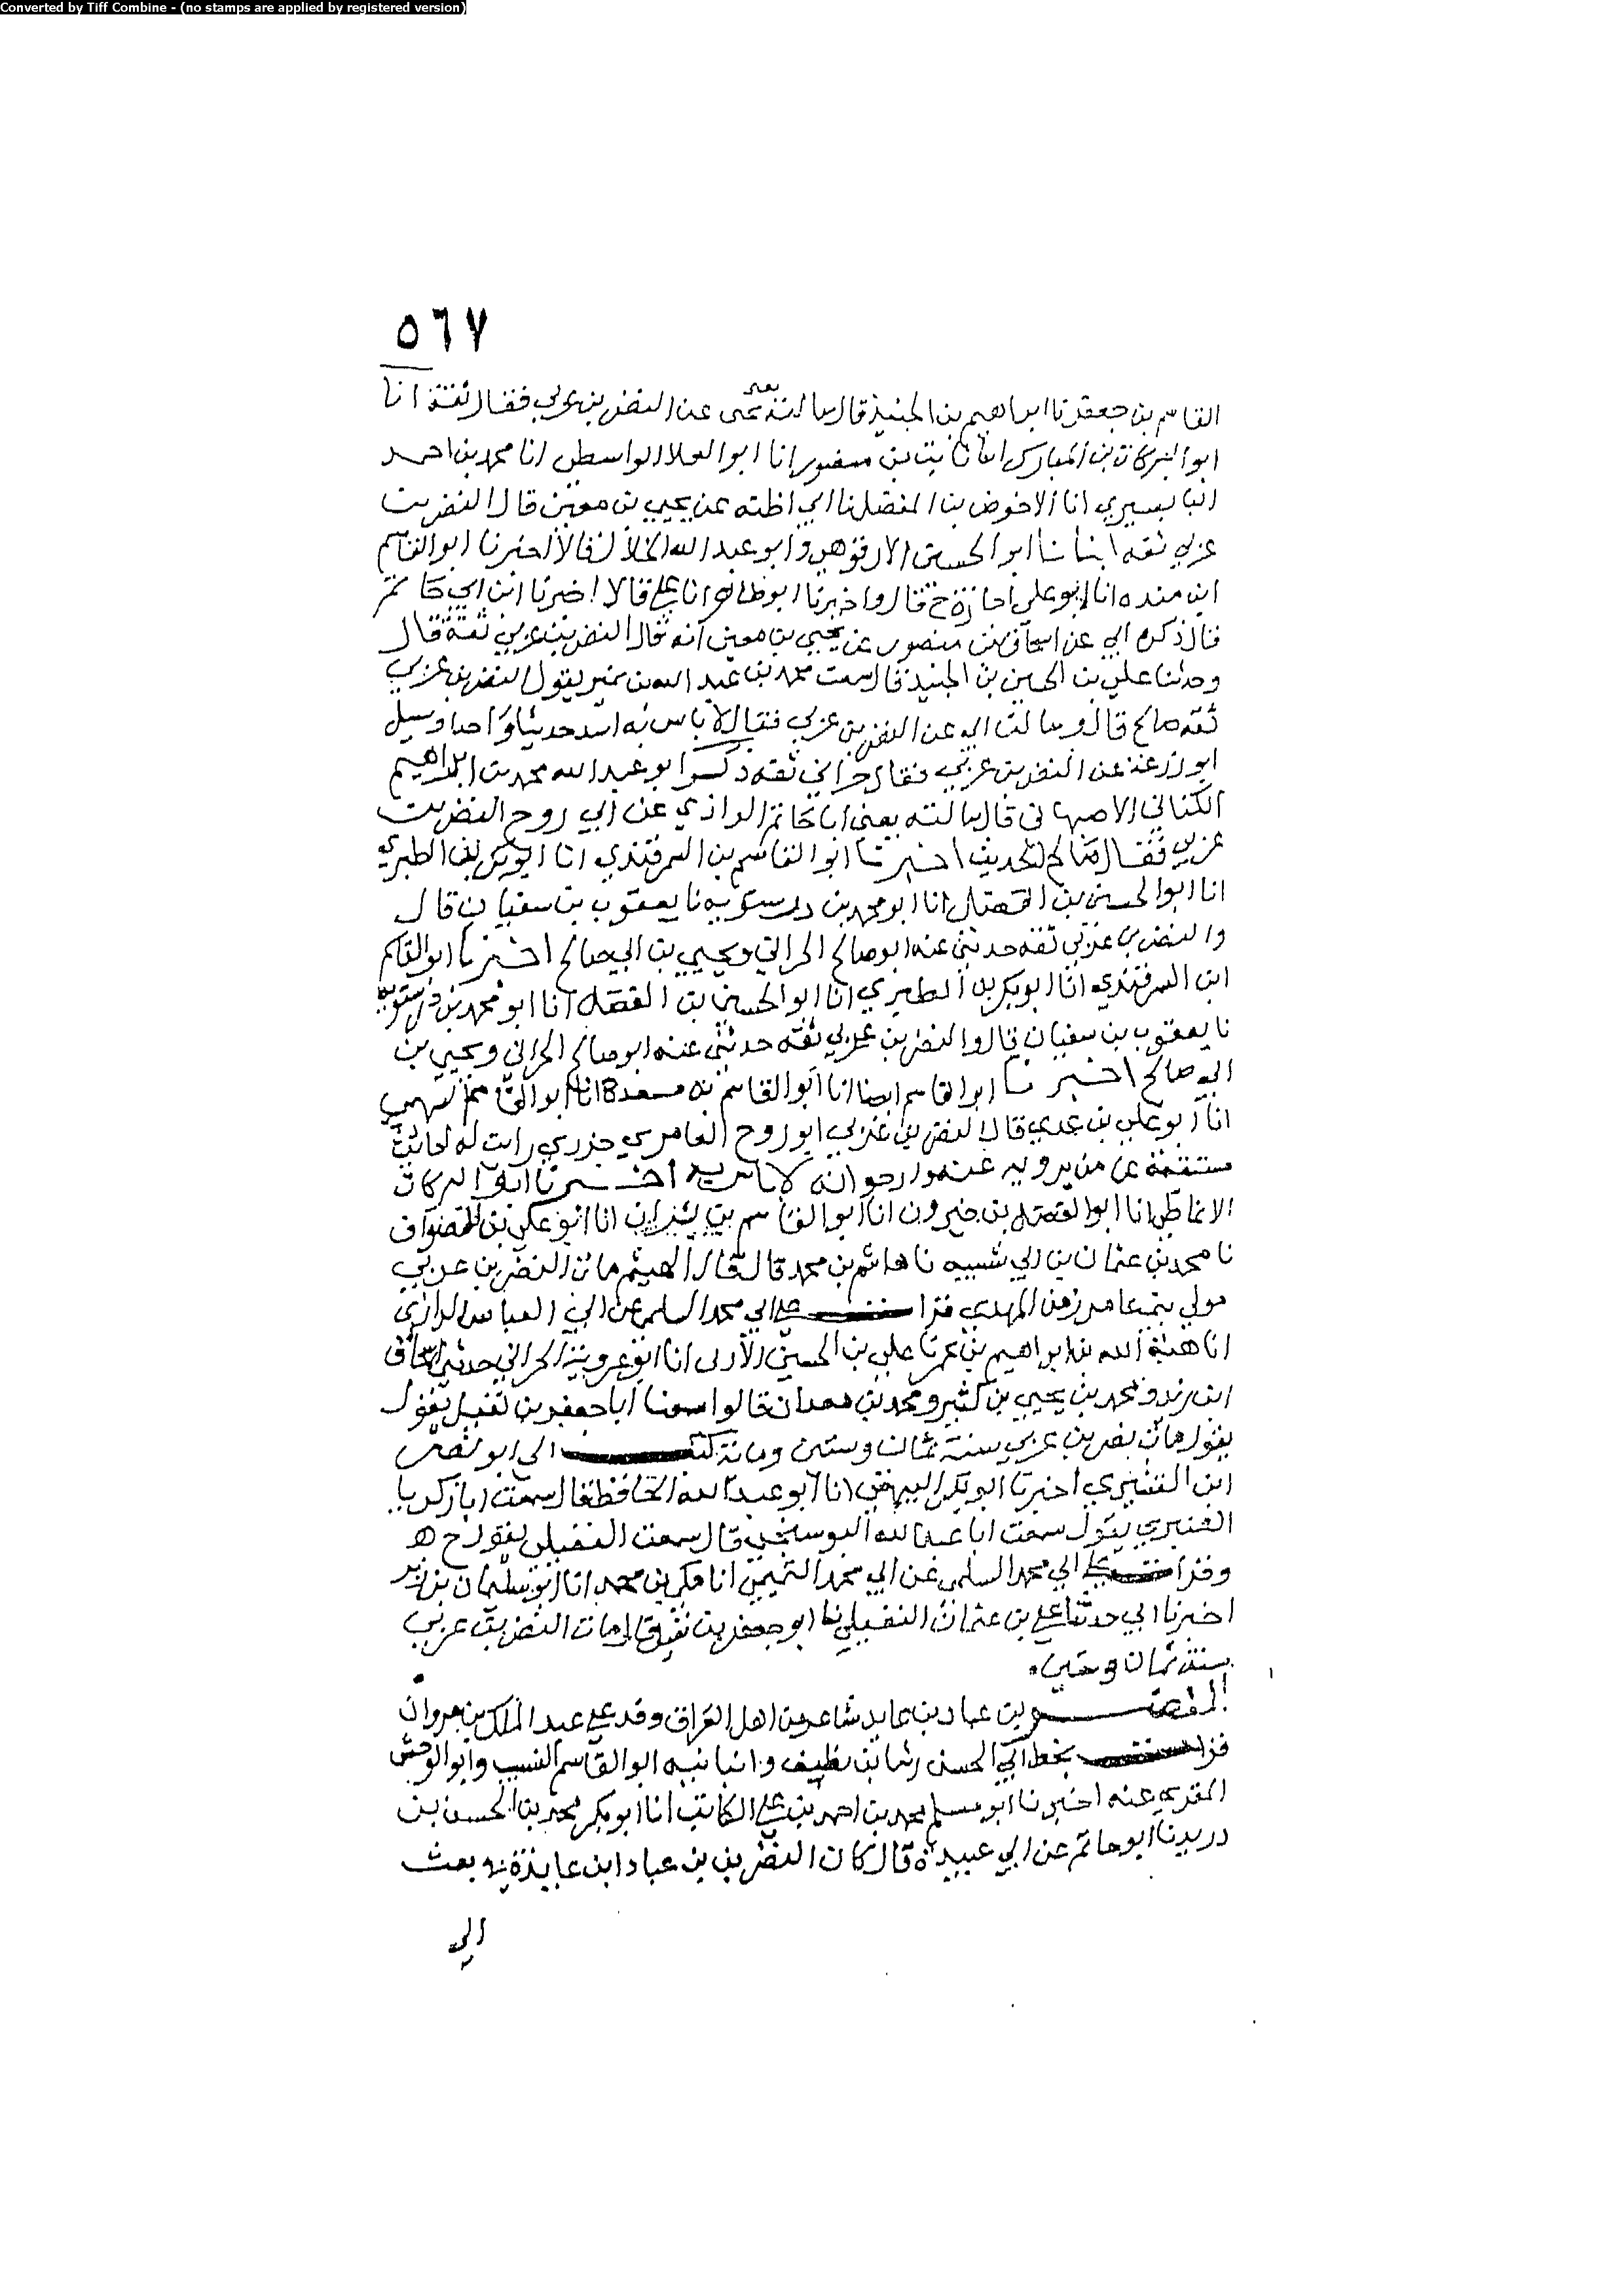 Converted by Tiff Combine - (no stamps are applied by registered version)
٥٦٧
القاسم بن جعفر نا ابراهيم بن الجنيد قال سالته يعني يحيى عن النضر بن عربي فقال ثقة انا
ابو البركات بن المبارك انا ثابت بن منصور انا ابو العلا الواسطي انا محمد بن احمد
البابسيري انا الاخوص بن المفضل نا ابي اظنه عن يحيى بن معين قال النضر بن
عربي ثقه انبانا ابو الحسين الابرقوهي وابو عبد الله الخلال قالا اخبرنا ابو القاسم
ابن منده انا ابو علي اجازة ح قالوا اخبرنا ابو طاهر انا علي قالا اخبرنا ابن ابي حاتم
قال ذكره ابي عن اسحاق بن منصور عن يحيى بن معين انه قال النضر بن عربي ثقة قال
وحدثنا علي بن الحسين بن الجنيد قال سمعت محمد بن عبد الله بن نمير يقول النضر بن عربي
ثقه صالح قال وسالت ابي عن النضر بن عربي فقال لا باس به وسيل
ابو زرعة عن النضر بن عربي فقال حراني ثقه ذكر ابو عبد الله محمد بن ابراهيم
الكناني الاصبهاني قال سالته يعني ابا حاتم الرازي عن ابي روح النضر بن
عربي فقال صالح الحديث اخبرنا ابو القاسم بن السمرقندي انا ابو بكر بن الطبري
انا ابو الحسين بن الفضل انا ابو محمد بن درستويه نا يعقوب بن سفيان قال
والنضر بن عربي ثقه حدثني عنه ابو صالح الحراني ويحيى بن ابي صالح اخبرنا ابو القاسم
ابن السمرقندي انا ابو بكر بن الطبري انا ابو الحسين بن الفضل انا ابو محمد بن درستويه
نا يعقوب بن سفيان قال والنضر بن عربي ثقه حدثني عنه ابو صالح الحراني ويحيى بن
ابي صالح اخبرنا ابو القاسم ايضا انا ابو القاسم بن مسعدة انا ابو القاسم السهمي
انا ابو علي بن عدي قال النضر بن عربي ابو روح العامري جزري رايت له احاديث
مستقيمة عن من يرويه عنه وارجو انه لا باس به اخبرنا ابو البركات
الانماطي انا ابو الفضل بن خيرون انا ابو القاسم بن بشران انا ابو علي بن الصواف
نا محمد بن عثمان بن ابي شيبه نا هاشم بن محمد قال قال الهيثم مات النضر بن عربي
مولى بني عامر زمن المهدي قرات على ابي محمد السلمي عن ابي العباس الرازي
انا هبة الله بن ابراهيم بن عمر نا علي بن الحسين انا ابو عروبة الحراني حدثني اسحاق
ابن زيد ومحمد بن يحيى بن كثير ومحمد بن معدان قالوا سمعنا ابا جعفر بن نفيل يقول
يقول مات نضر بن عربي سنة ثمان وستين ومائة كتب الي ابو نصر
ابن القشيري اخبرنا ابو بكر البيهقي انا ابو عبد الله الحافظ قال سمعت ابا زكريا
العنبري يقول سمعت ابا عبد الله البوسنجي قال سمعت النفيلي يقول ح
وقرات على ابي محمد السلمي عن ابي محمد التميمي انا مكي بن محمد انا ابو سليمان بن زبر
اخبرنا ابي حدثنا علي بن عثمان النفيلي نا ابو جعفر بن نفيل قال مات النضر بن عربي
سنة ثمان وستين
بن عباد بن عابد شاعر من اهل العراق وفد على عبد الملك بن مروان
قرات بخط ابي الحسن رشا بن نظيف وانبانيه ابو القاسم النسيب وابو الوحش
المقري عنه اخبرنا ابو مسلم محمد بن احمد بن علي الكاتب انا ابو بكر محمد بن الحسن بن
دريد نا ابو حاتم عن ابي عبيدة قال كان النضر بن بن عباد ابن عابذة بعث
الى